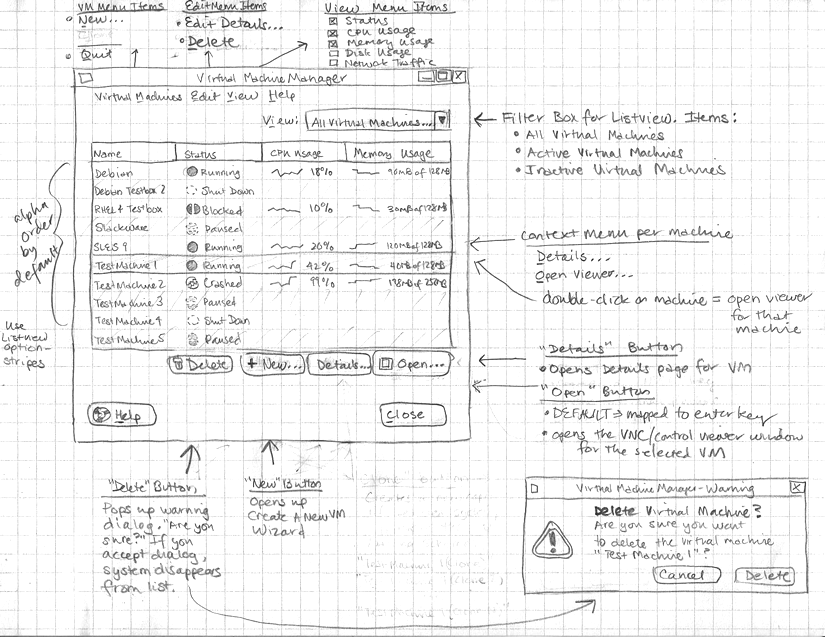 VM Menu Items
• New...
• Quit
Edit Menu Items
• Edit Details...
• Delete
View Menu Items
Status
CPU Usage
Memory Usage
Disk Usage
Network Traffic
Virtual Machine Manager
Virtual Machines Edit View Help
View: All Virtual Machines...
Name Status CPU Usage Memory Usage
Debian Running 18% 90MB of 128MB
Debian Testbox 2 Shut Down
RHEL4 Testbox Blocked 10% 30MB of 128MB
Slackware Paused
SLES 9 Running 20% 120MB of 128MB
Test Machine 1 Running 42% 40MB of 128MB
Test Machine 2 Crashed 99%
Test Machine 3 Paused
Test Machine 4 Shut Down
Test Machine 5 Paused
Delete + New... Details... Open...
Help Close
alpha
order
by
default
Use
Listview
option-
stripes
Filter Box for Listview. Items:
• All Virtual Machines
• Active Virtual Machines
• Inactive Virtual Machines
Context Menu per machine
Details...
Open Viewer...
double-click on machine = open viewer
for that
machine
"Details" Button
• Opens Details page for VM
"Open" Button
• DEFAULT → mapped to enter key
• opens the VNC/control viewer window
for the selected VM
"Delete" Button
Pops up warning
dialog. "Are you
sure?" If you
accept dialog,
system disappears
from list.
"New" Button
Opens up
Create A New VM
Wizard
Virtual Machine Manager - Warning
Delete Virtual Machine?
Are you sure you want
to delete the virtual machine
"Test Machine 1"?
Cancel Delete